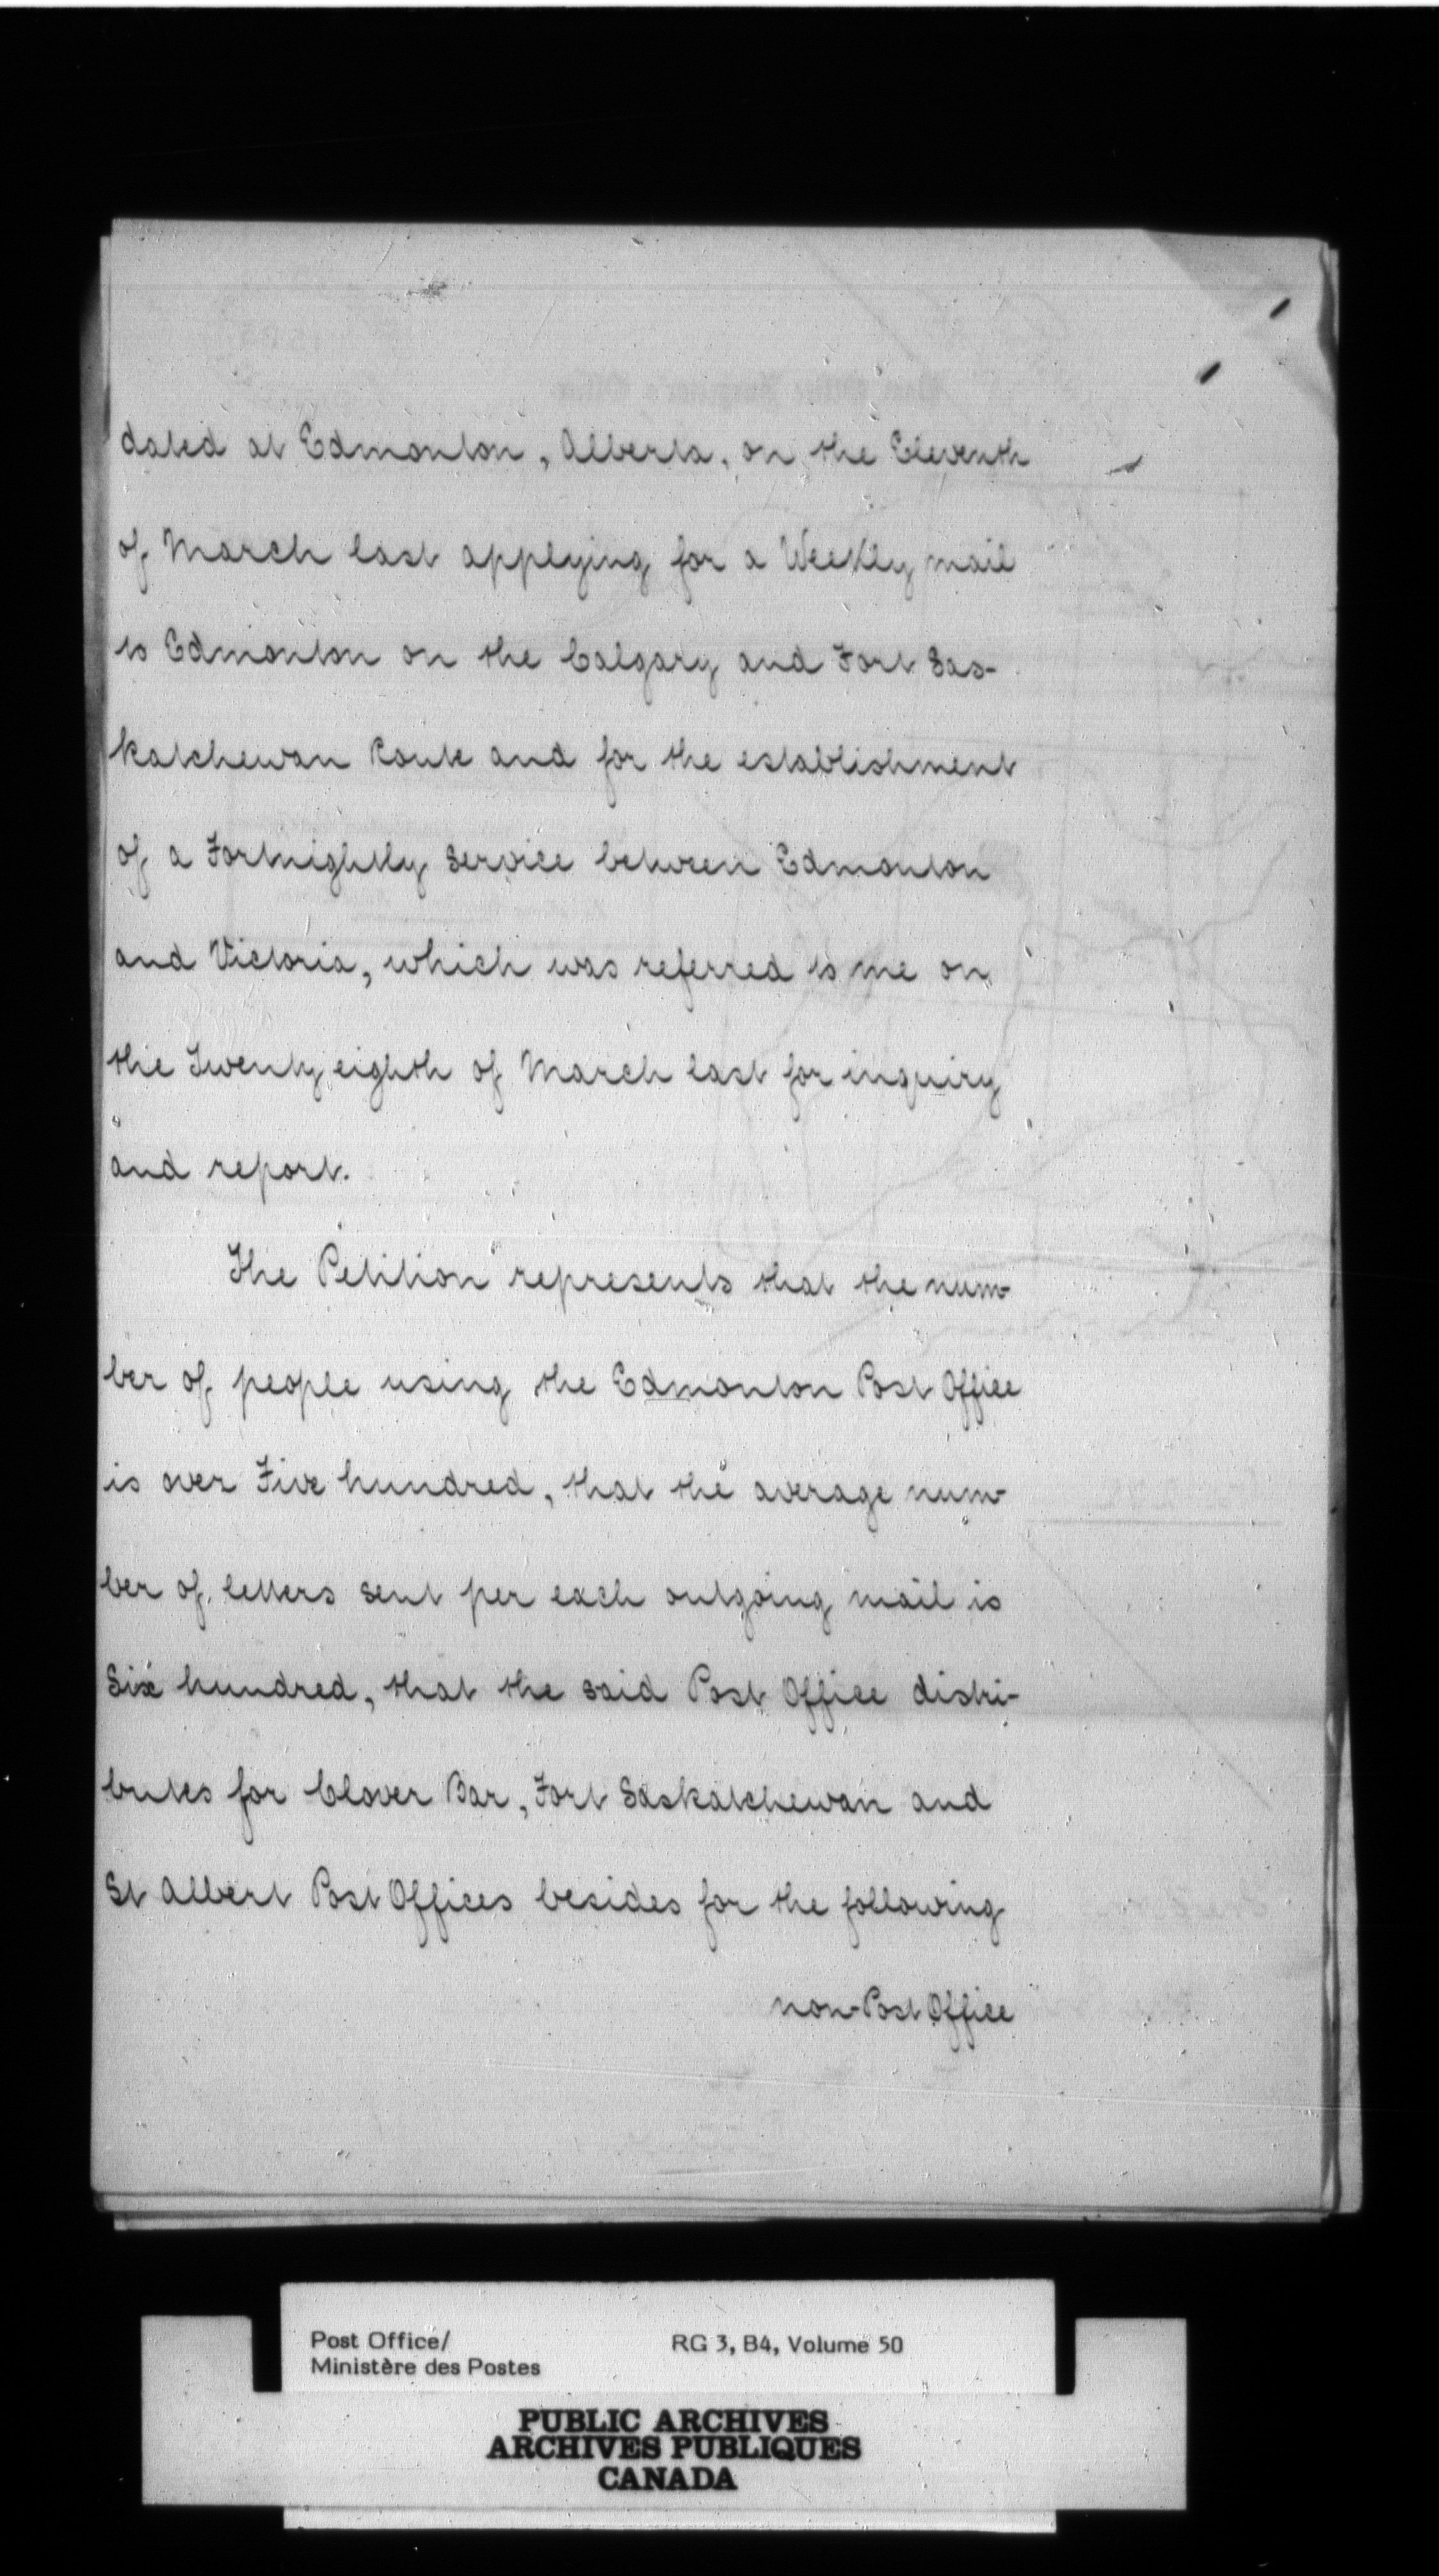 dated at Edmonton, Alberta, on the Eleventh
of March last applying for a Weekly mail
to Edmonton on the Calgary and Fort Sas-
katchewan Route and for the establishment
of a Fortnightly Service between Edmonton
and Victoria, which was referred to me on
the Twenty eighth of March last for inquiry
and report.
The Petition represents that the num-
ber of people using the Edmonton Post Office
is over Five hundred, that the average num-
ber of letters sent per each outgoing mail is
Six hundred, that the said Post Office distri-
butes for Clover Bar, Fort Saskatchewan and
St Albert Post Offices besides for the following
non-Post Office
Post Office/
Ministère des Postes
RG 3, B4, Volume 50
PUBLIC ARCHIVES
ARCHIVES PUBLIQUES
CANADA